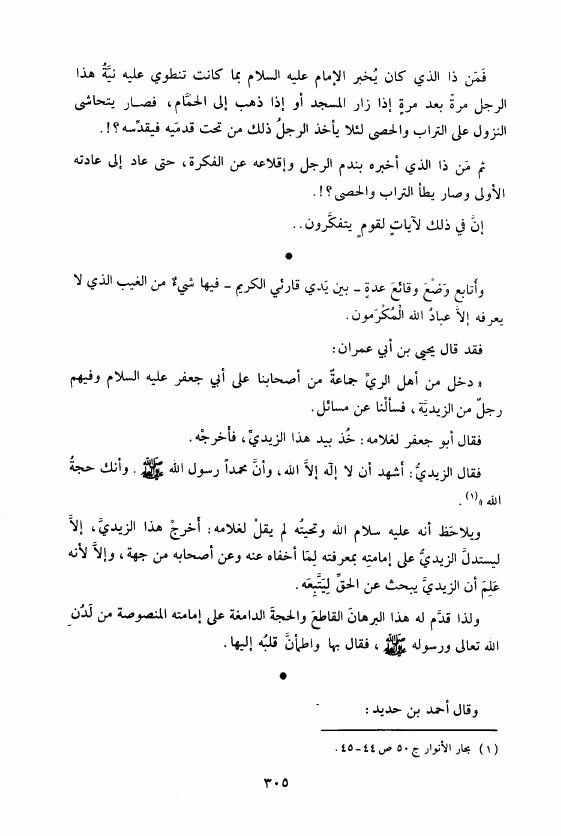 فَمَن ذا الذي كان يُخبر الإمام عليه السلام بما كانت تنطوي عليه نيَّةُ هذا
الرجل مرةً بعد مرةٍ إذا زار المسجد أو إذا ذهب إلى الحمَّام، فصار يتحاشى
النزول على التراب والحصى لئلا يأخذ الرجلُ ذلك من تحت قدمَيه فيقدِّسه؟!.
ثم مَن ذا الذي أخبره بندم الرجل وإقلاعه عن الفكرة، حتى عاد إلى عادته
الأولى وصار يطأ التراب والحصى؟!.
إنَّ في ذلك لآياتٍ لقومٍ يتفكَّرون..
●
وأتابع وَضْعَ وقائعَ عدةٍ - بين يَدي قارئي الكريم - فيها شيءٌ من الغيب الذي لا
يعرفه إلاَّ عبادُ الله المُكْرَمون.
فقد قال يحيى بن أبي عمران:
«دخل من أهل الريِّ جماعةٌ من أصحابنا على أبي جعفر عليه السلام وفيهم
رجلٌ من الزيديَّة، فسألْنا عن مسائل.
فقال أبو جعفر لغلامه: خُذ بيد هذا الزيديِّ، فأَخرجْه.
فقال الزيديُّ: أشهد أن لا إله إلاَّ الله، وأنَّ محمداً رسول الله ﷺ. وأنك حجةُ
الله»(١).
ويلاحَظ أنه عليه سلام الله وتحيتُه لم يقلْ لغلامه: أَخرجْ هذا الزيديَّ، إلاَّ
ليستدلَّ الزيديُّ على إمامتِه بمعرفته لِمَا أخفاه عنه وعن أصحابه من جهة، وإلاَّ لأنه
عَلِمَ أن الزيديَّ يبحث عن الحقِّ لِيَتَّبِعَه.
ولذا قدَّم له هذا البرهانَ القاطعَ والحجةَ الدامغة على إمامته المنصوصة من لَدُنِ
الله تعالى ورسوله ﷺ، فقال بها واطمأنَّ قلبُه إليها.
●
وقال أحمد بن حديد:
(١) بحار الأنوار ج ٥٠ ص ٤٤-٤٥.
٣٠٥